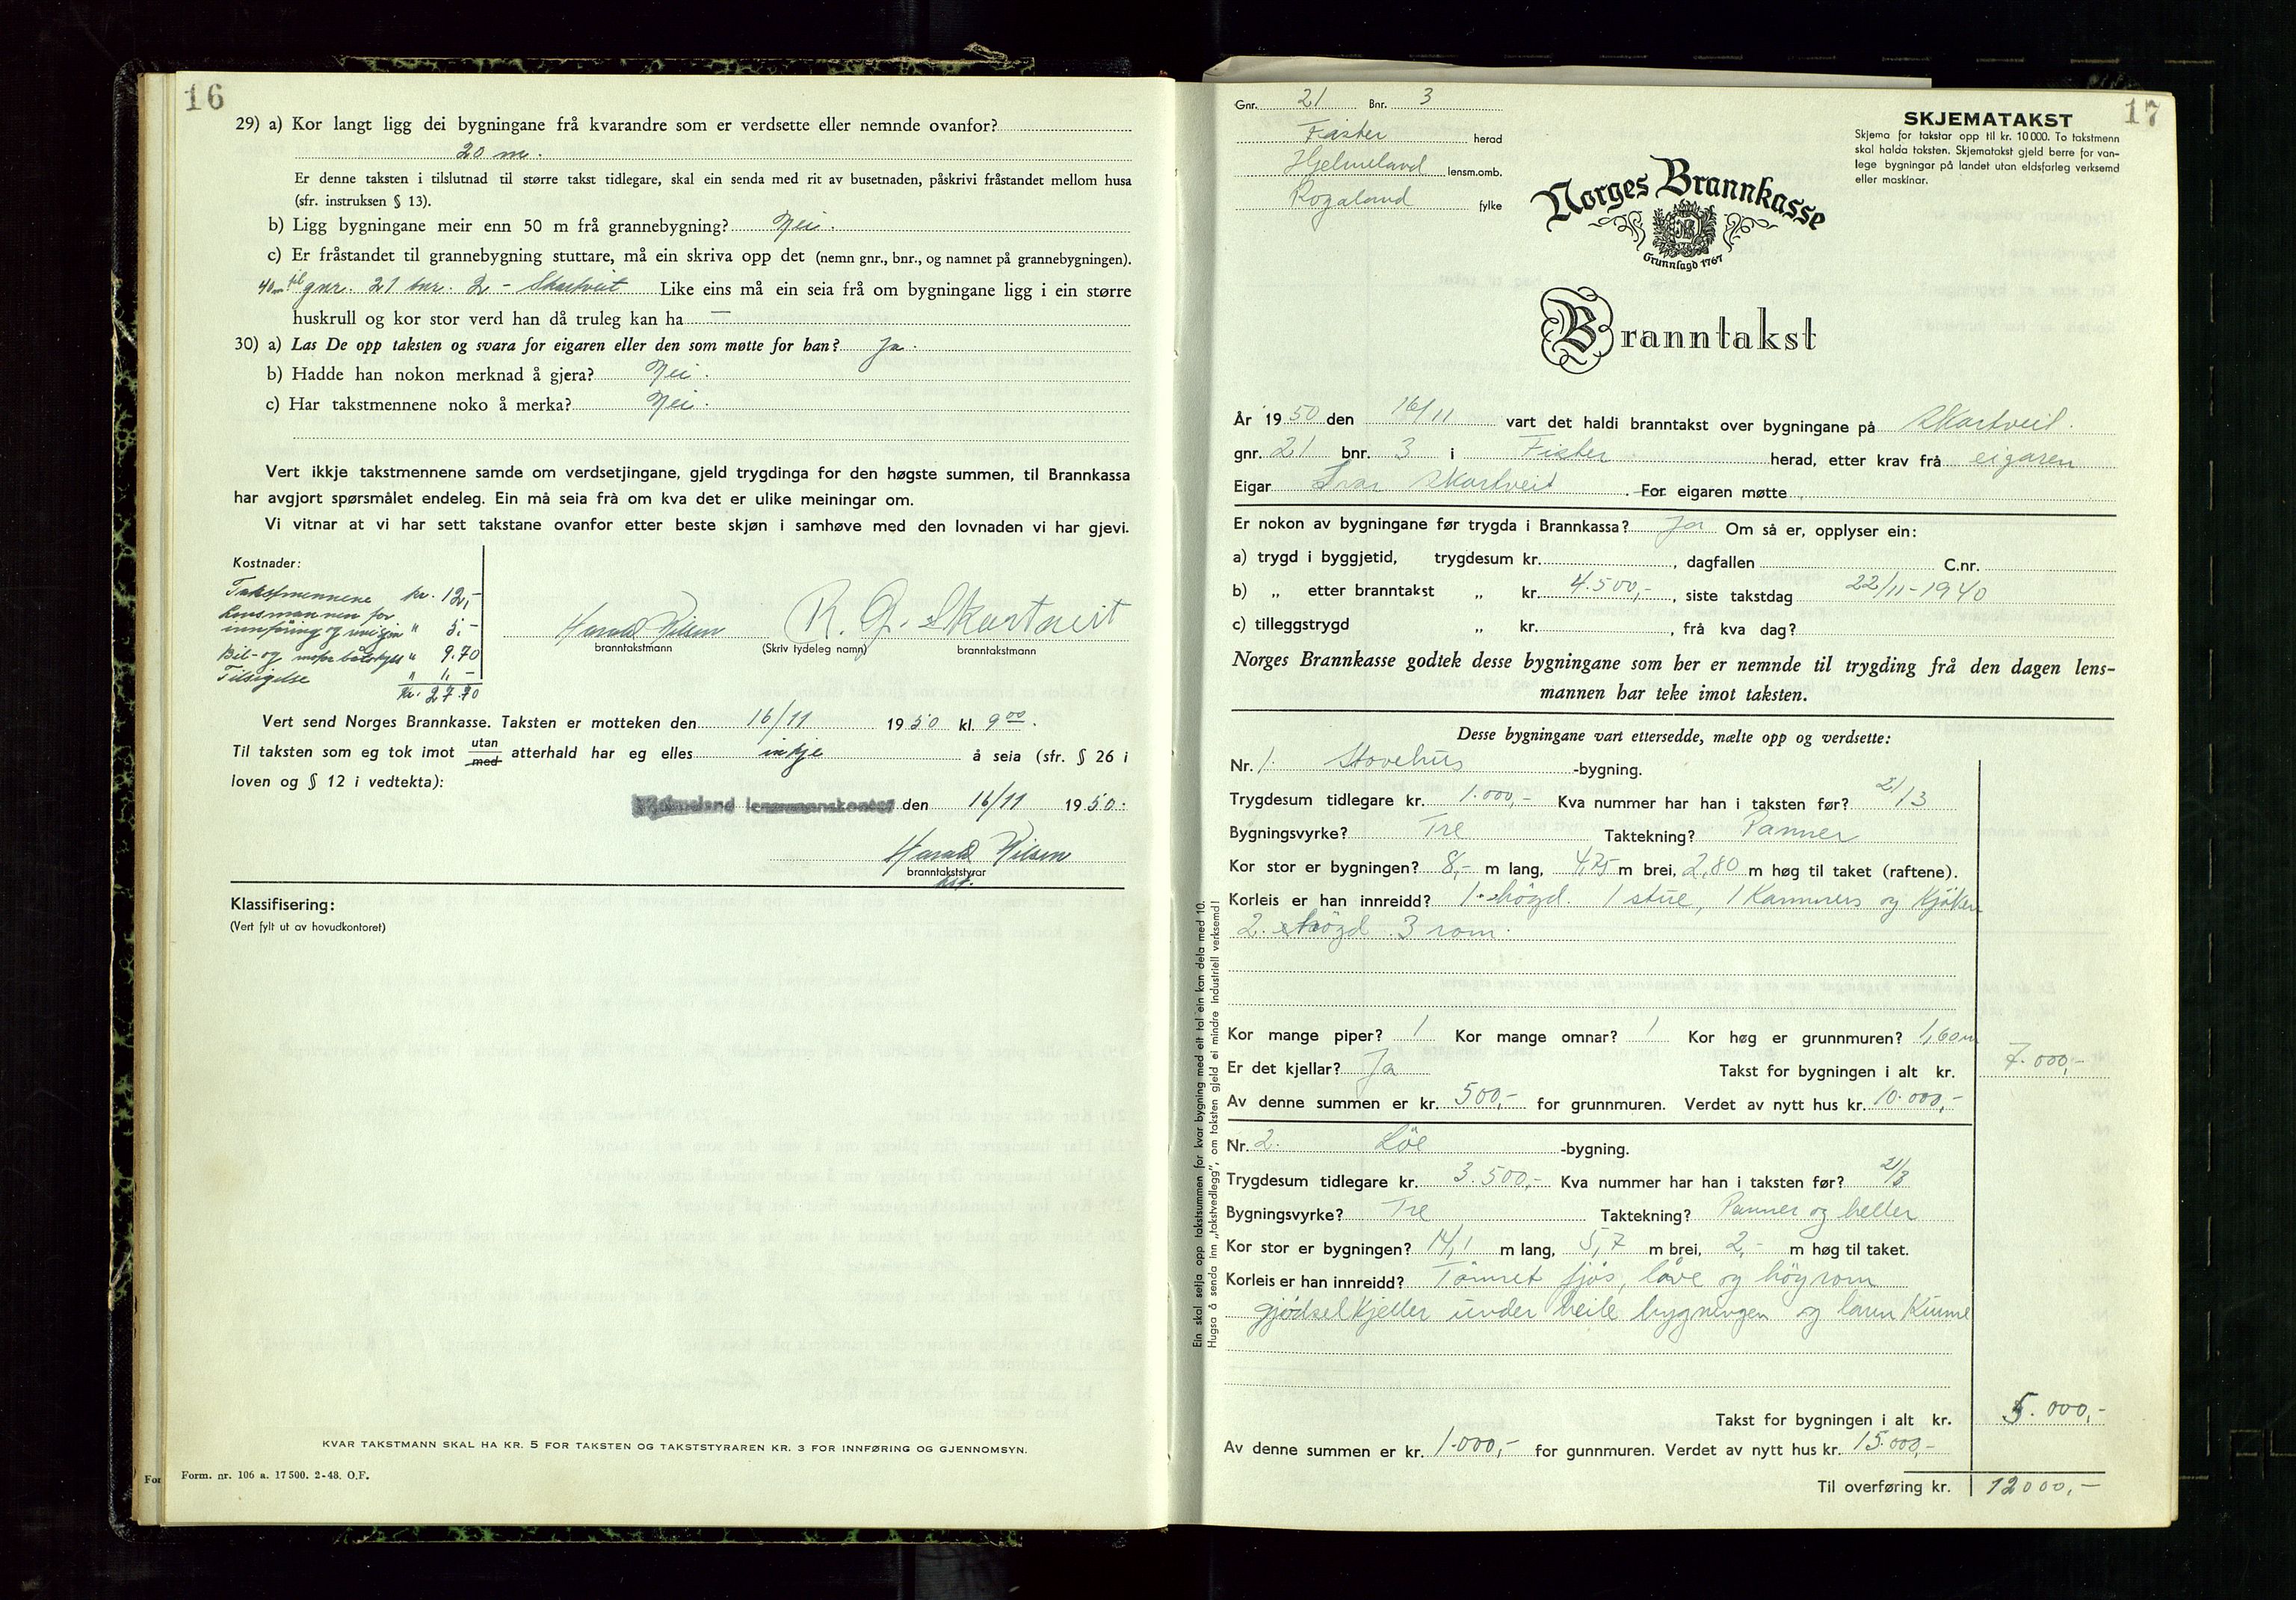 16
29) a) Kor langt ligg dei bygningane frå kvarandre som er verdsette eller nemnde ovanfor?
20 m.
Er denne taksten i tilslutnad til større takst tidlegare, skal ein senda med rit av busetnaden, påskrivi fråstandet mellom husa
(sfr. instruksen § 13).
b) Ligg bygningane meir enn 50 m frå grannebygning? Nei.
c) Er fråstandet til grannebygning stuttare, må ein skriva opp det (nemn gnr., bnr., og namnet på grannebygningen).
40 m til gnr. 21 bnr. 2 - Skartveit Like eins må ein seia frå om bygningane ligg i ein større
huskrull og kor stor verd han då truleg kan ha —
30) a) Las De opp taksten og svara for eigaren eller den som møtte for han? Ja.
b) Hadde han nokon merknad å gjera? Nei.
c) Har takstmennene noko å merka? Nei.
Vert ikkje takstmennene samde om verdsetjingane, gjeld trygdinga for den høgste summen, til Brannkassa
har avgjort spørsmålet endeleg. Ein må seia frå om kva det er ulike meiningar om.
Vi vitnar at vi har sett takstane ovanfor etter beste skjøn i samhøve med den lovnaden vi har gjevi.
Kostnader:
Takstmennene kr. 12,-
Lensmannen for
innføring og " 5,-
Bil- og motorbåtskyss " 9.70
Tilsigelse " 1,-
Kr. 27.70
Harald Nilsen R. G. Skartveit
branntakstmann (Skriv tydeleg namn) branntakstmann
Vert send Norges Brannkasse. Taksten er motteken den 16/11 1950 kl. 9 00.
Til taksten som eg tok imot utan med atterhald har eg elles inkje å seia (sfr. § 26 i
loven og § 12 i vedtekta):
Hjelmeland lensmannskontor den 16/11 1950.
Harald Nilsen
branntakststyrar
Klassifisering:
(Vert fylt ut av hovudkontoret)
KVAR TAKSTMANN SKAL HA KR. 5 FOR TAKSTEN OG TAKSTSTYRAREN KR. 3 FOR INNFØRING OG GJENNOMSYN.
For Form. nr. 106 a. 17 500. 2-48. O.F.
17
Gnr. 21 Bnr. 3
Fister herad
Hjelmeland lensm.omb.
Rogaland fylke
SKJEMATAKST
Skjema for takstar opp til kr. 10 000. To takstmenn
skal halda taksten. Skjematakst gjeld berre for van-
lege bygningar på landet utan eldsfarleg verksemd
eller maskinar.
Norges Brannkasse
Grunnlagd 1767
Branntakst
År 1950 den 16/11 vart det haldi branntakst over bygningane på Skartveit.
gnr. 21 bnr. 3 i Fister herad, etter krav frå eigaren
Eigar Ivar Skartveit. For eigaren møtte
Er nokon av bygningane før trygda i Brannkassa? Ja Om så er, opplyser ein:
a) trygd i byggjetid, trygdesum kr. , dagfallen C.nr.
b) „ etter branntakst „ kr. 4.500,- , siste takstdag 22/11-1940
c) tilleggstrygd „ kr. , frå kva dag?
Norges Brannkasse godtek desse bygningane som her er nemnde til trygding frå den dagen lens-
mannen har teke imot taksten.
Desse bygningane vart ettersedde, mælte opp og verdsette:
Nr. 1. Stovehus -bygning.
Trygdesum tidlegare kr. 1.000,- Kva nummer har han i taksten før? 21/3
Bygningsvyrke? Tre Taktekning? Panner
Kor stor er bygningen? 8,- m lang, 4,75 m brei, 2,80 m høg til taket (raftene).
Korleis er han innreidd? 1. høgd. 1 stue, 1 Kammers og Kjøken
2. høgd 3 rom.
Kor mange piper? 1 Kor mange omnar? 1 Kor høg er grunnmuren? 1,60 m
Er det kjellar? Ja Takst for bygningen i alt kr. 7.000,-
Av denne summen er kr. 500,- for grunnmuren. Verdet av nytt hus kr. 10.000,-
Nr. 2. Löe -bygning.
Trygdesum tidlegare kr. 3.500,- Kva nummer har han i taksten før? 21/3
Bygningsvyrke? Tre Taktekning? Panner og heller
Kor stor er bygningen? 14,1 m lang, 5,7 m brei, 2,- m høg til taket.
Korleis er han innreidd? Tömret fjös, låve og höyrom
gjödselkjeller under heile bygningen og
Takst for bygningen i alt kr. 5.000,-
Av denne summen er kr. 1.000,- for gunnmuren. Verdet av nytt hus kr. 15.000,-
Til overføring kr. 12000,-
Ein skal setja opp takstsummen for kvar bygning med eit tal ein kan dela med 10.
Hugsa å senda inn „takstvedlegg", om taksten gjeld ei mindre industriell verksemd!